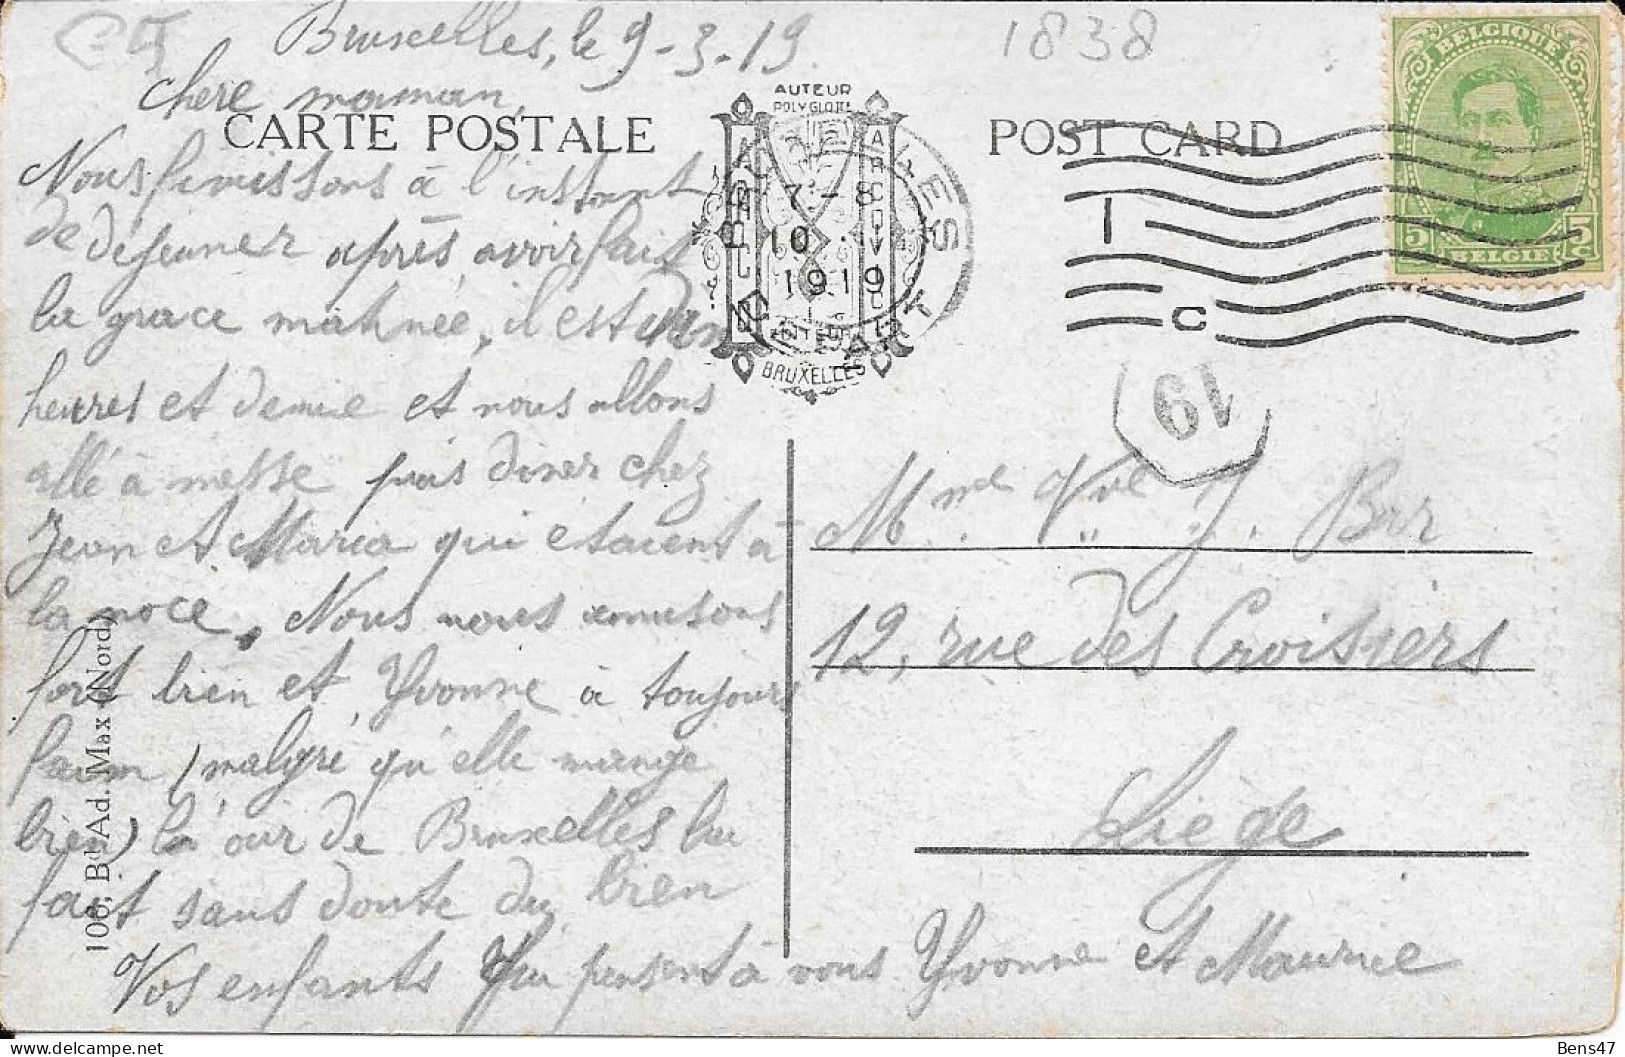 Bruxelles, le 9-3-19
1838
chere maman,
CARTE POSTALE
POST CARD
Nous finissons à l'instant
de déjeuner après avoir fait
la grace matinée, il est
heures et demie et nous allons
allé à messe puis diner chez
Jean et Maria qui etaient à
la noce. Nous nous amusons
fort bien et Yvonne à toujours
faim (malgré qu'elle mange
bien) la
de Bruxelles lui
fait sans doute du bien
Vos enfants qui pensent à vous Yvonne et Maurice
106, Bd Ad. Max (Nord)
AUTEUR
POLYGLOTTE
7-8
10
1919
BRUXELLES
BELGIQUE
5c 5c
BELGIE
19
Mme Vve J.
12, rue des Croisiers
Liège
Bens47